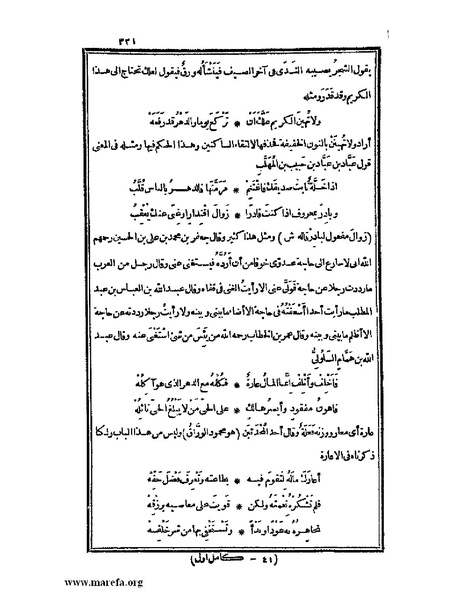 ٣٢١
يقول الشجر يصيبه الندى فى آخر الصيف فينشأ له ورق فيقول لعلك تحتاج الى هذا
الكريم وقد قدر ومثله
ولا تهين الكريم علك أن * تركع يوما والدهر قد رفعه
أراد ولا تهينن بالنون الخفيفة فحذفها لالتقاء الساكنين وهذا الحكم فيها ومثله فى المعنى
قول عباد بن عباد بن حبيب بن المهلب
اذا خلة نابت صديقك فاغتنم * مرمتها فالدهر بالناس قلب
وبادر بمعروف اذا كنت قادرا * زوال اقتدار أو غنى عنك يعقب
(زوال مفعول لبادر قاله ش) ومثل هذا كثير وقال جعفر بن محمد بن على بن الحسين رحمهم
الله انى لأسارع الى حاجة عدوى خوفا من أن أرده فيستغنى عنى وقال رجل من العرب
ما رددت رجلا عن حاجة فولى عنى الا رأيت الغنى فى قفاه وقال عبد الله بن العباس بن عبد
المطلب ما رأيت أحدا أسعفته فى حاجة الا أضاء ما بينى وبينه ولا رأيت رجلا رددته عن حاجة
الا أظلم ما بينى وبينه وقال عمر بن الخطاب رحمه الله من يئس من شئ استغنى عنه وقال عبد
الله بن همام السلولى
فأخلف وأتلف انما المال عارة * فكله مع الدهر الذى هو آكله
فأهون مفقود وأيسر هالك * على الحى من لا يبلغ الحى نائله
عارة أى معار ووزنه فعلة وقال أحد المحدثين (هو محمود الوراق) وليس من هذا الباب ولكنا
ذكرناه فى الاعارة
أعارك ماله لتقوم فيه * بطاعته وتعرف فضل حقه
فلم تشكره نعمته ولكن * قويت على معاصيه برزقه
تجاهره به عودا وبدأ * وتستخفى بها من شر خلقه
(٤١ - كامل اول)
www.marefa.org